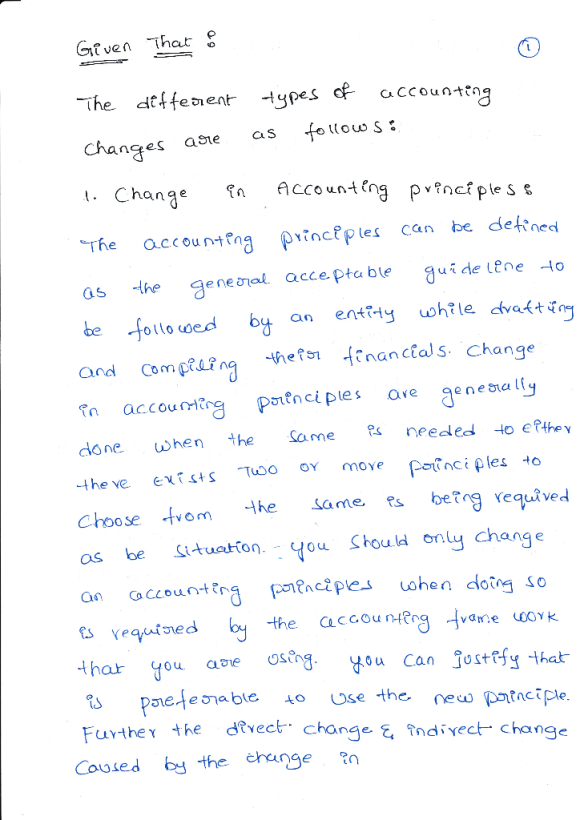 Given That :
1
The different types of accounting
changes are as follows:
1. Change in Accounting principles:
The accounting principles can be defined
as the general acceptable guideline to
be followed by an entity while drafting
and compiling their financials. Change
in accounting principles are generally
done when the same is needed to either
there exists Two or more principles to
Choose from the same is being required
as be situation. - you should only change
an accounting principles when doing so
is required by the accounting frame work
that you are using. you can justify that
is preferable to use the new principle.
Further the direct change & indirect change
Caused by the change in